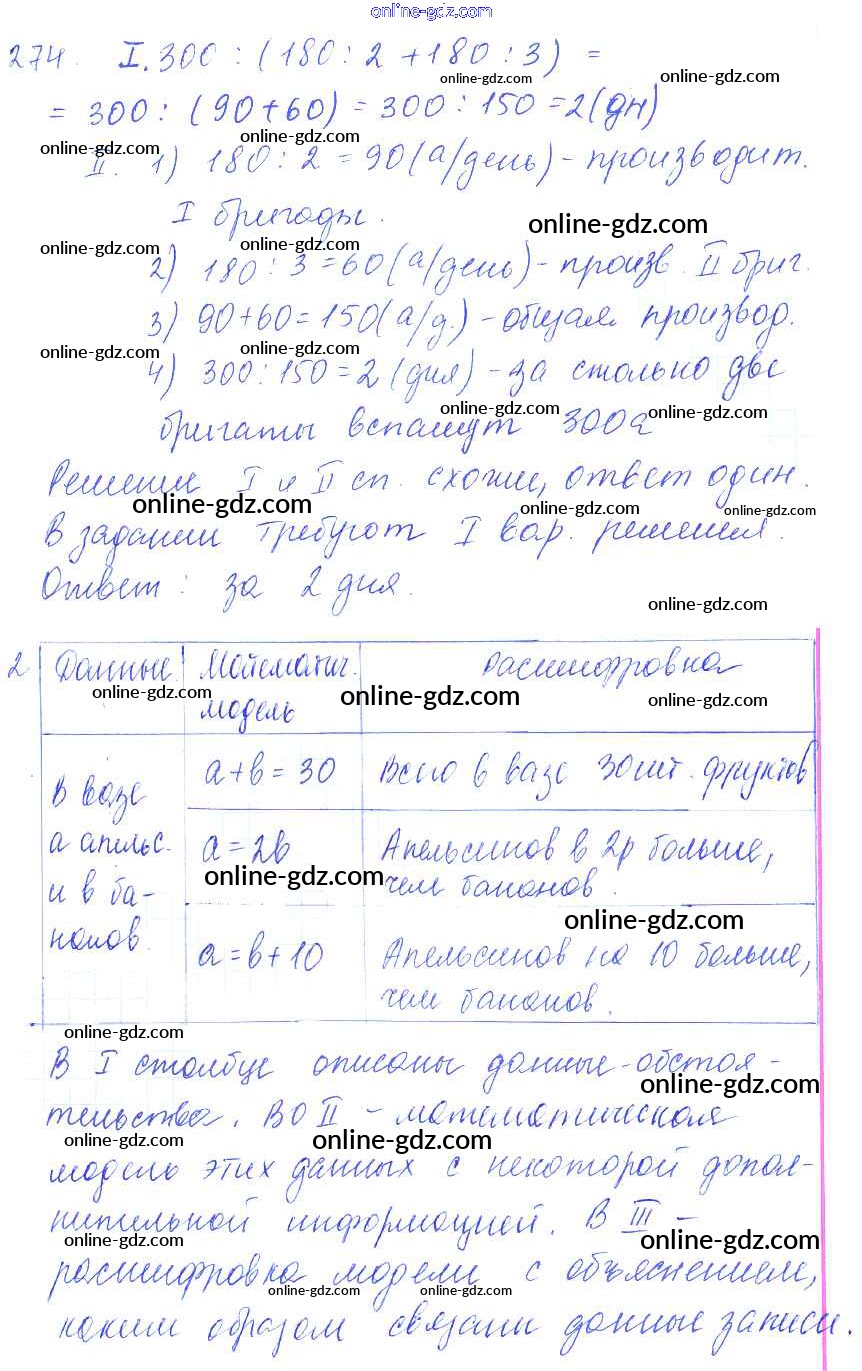 online-gdz.com
274. I. 300 : (180 : 2 + 180 : 3) =
online-gdz.com online-gdz.com
= 300 : (90 + 60) = 300 : 150 = 2 (дн)
online-gdz.com online-gdz.com
II. 1) 180 : 2 = 90 (а/день) - производит.
I бригады.
online-gdz.com
online-gdz.com online-gdz.com
2) 180 : 3 = 60 (а/день) - произв. II бриг.
3) 90 + 60 = 150 (а/д.) - общая производ.
online-gdz.com online-gdz.com
4) 300 : 150 = 2 (дня) - за столько две
online-gdz.com online-gdz.com
бригаты вспашут 300а
Решения I и II сп. схожи, ответ один.
online-gdz.com online-gdz.com online-gdz.com
В задании требуют I вар. решения.
Ответ: за 2 дня.
online-gdz.com
2 Данные Математич. модель Расшифровка
online-gdz.com online-gdz.com online-gdz.com
В вазе а апельс. и в бананов.
a + b = 30 Всего в вазе 30 шт. фруктов
a = 2b Апельсинов в 2р больше,
чем бананов.
online-gdz.com
online-gdz.com
a = b + 10 Апельсинов на 10 больше,
чем бананов.
online-gdz.com
В I столбце описаны данные - обстоя-
online-gdz.com
тельства. Во II - математическая
online-gdz.com online-gdz.com
модель этих данных с некоторой допол-
нительной информацией. В III -
online-gdz.com online-gdz.com
расшифровка модели с объяснением,
online-gdz.com online-gdz.com
каким образом связаны данные записи.